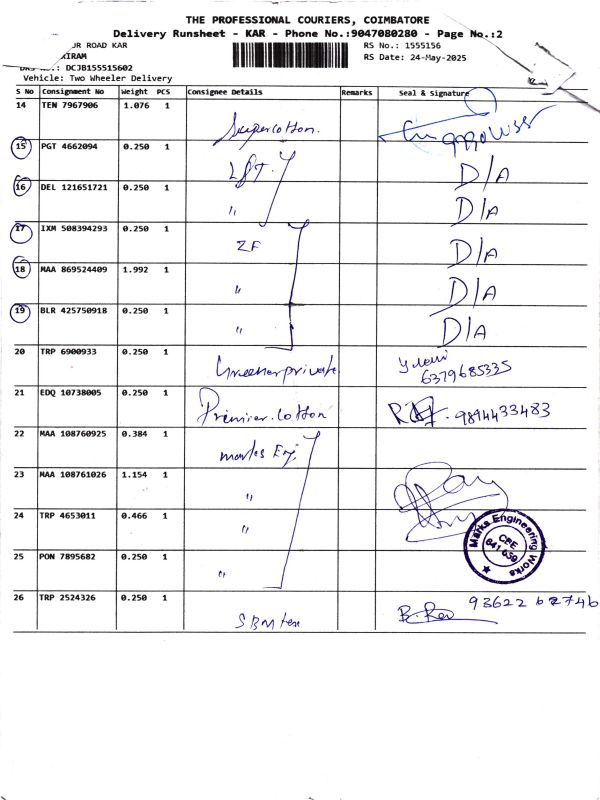 THE PROFESSIONAL COURIERS, COIMBATORE
Delivery Runsheet - KAR - Phone No.:9047080280 - Page No.:2
UR ROAD KAR
RS No.: 1555156
IRAM
RS Date: 24-May-2025
DRS No.: DCJB155515602
Vehicle: Two Wheeler Delivery
S No Consignment No Weight PCS Consignee Details Remarks Seal & Signature
14 TEN 7967906 1.076 1
Supercotton.
15 PGT 4662094 0.250 1
D/A
16 DEL 121651721 0.250 1
" D/A
17 IXM 508394293 0.250 1
ZF D/A
18 MAA 869524409 1.992 1
" D/A
19 BLR 425750918 0.250 1
" D/A
20 TRP 6900933 0.250 1
Greenerprivate 6379685335
21 EDQ 10738005 0.250 1
Premier.cotton 9894433483
22 MAA 108760925 0.384 1
marks Eng.
23 MAA 108761026 1.154 1
"
24 TRP 4653011 0.466 1
"
Marks Engineering Works
CBE
641 659
25 PON 7895682 0.250 1
"
26 TRP 2524326 0.250 1
93622 62746